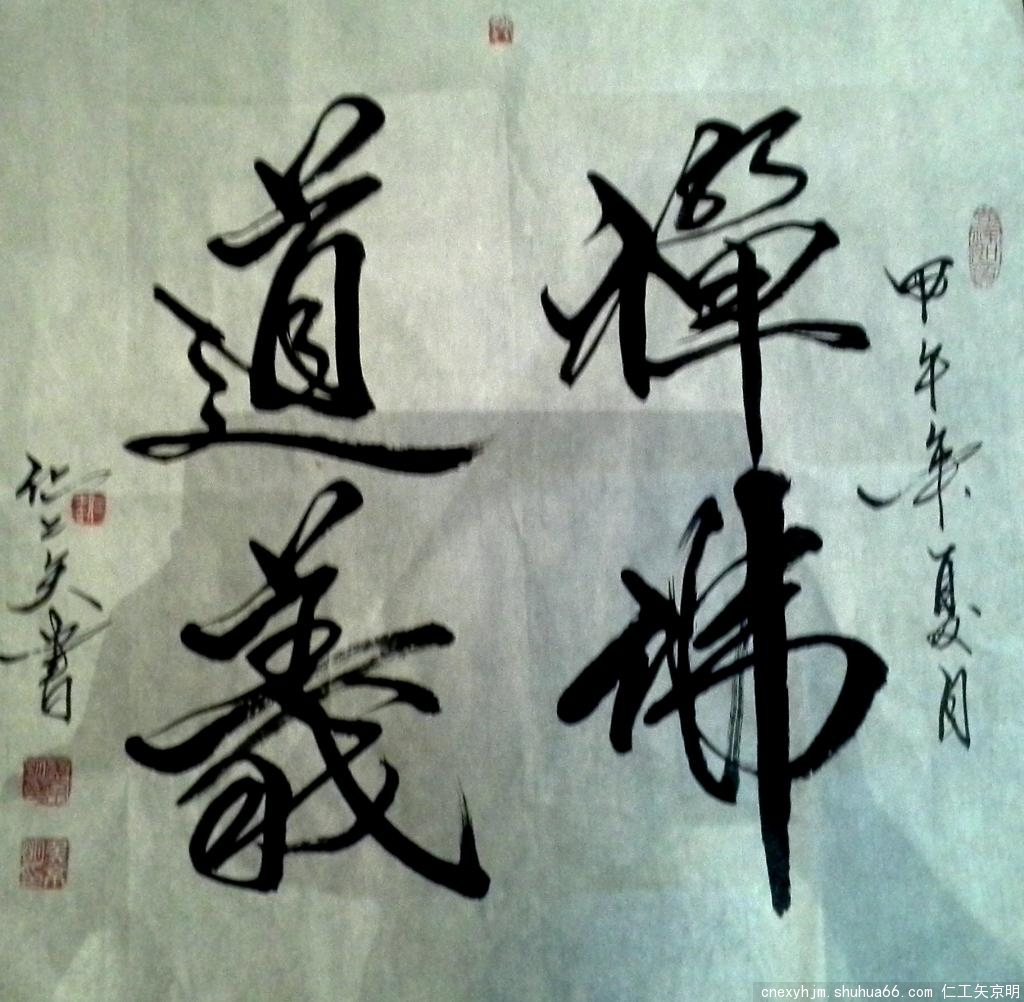 甲午年夏月
禪佛
道義
仁工矢書
cnexyhjm.shuhua66.com 仁工矢京明